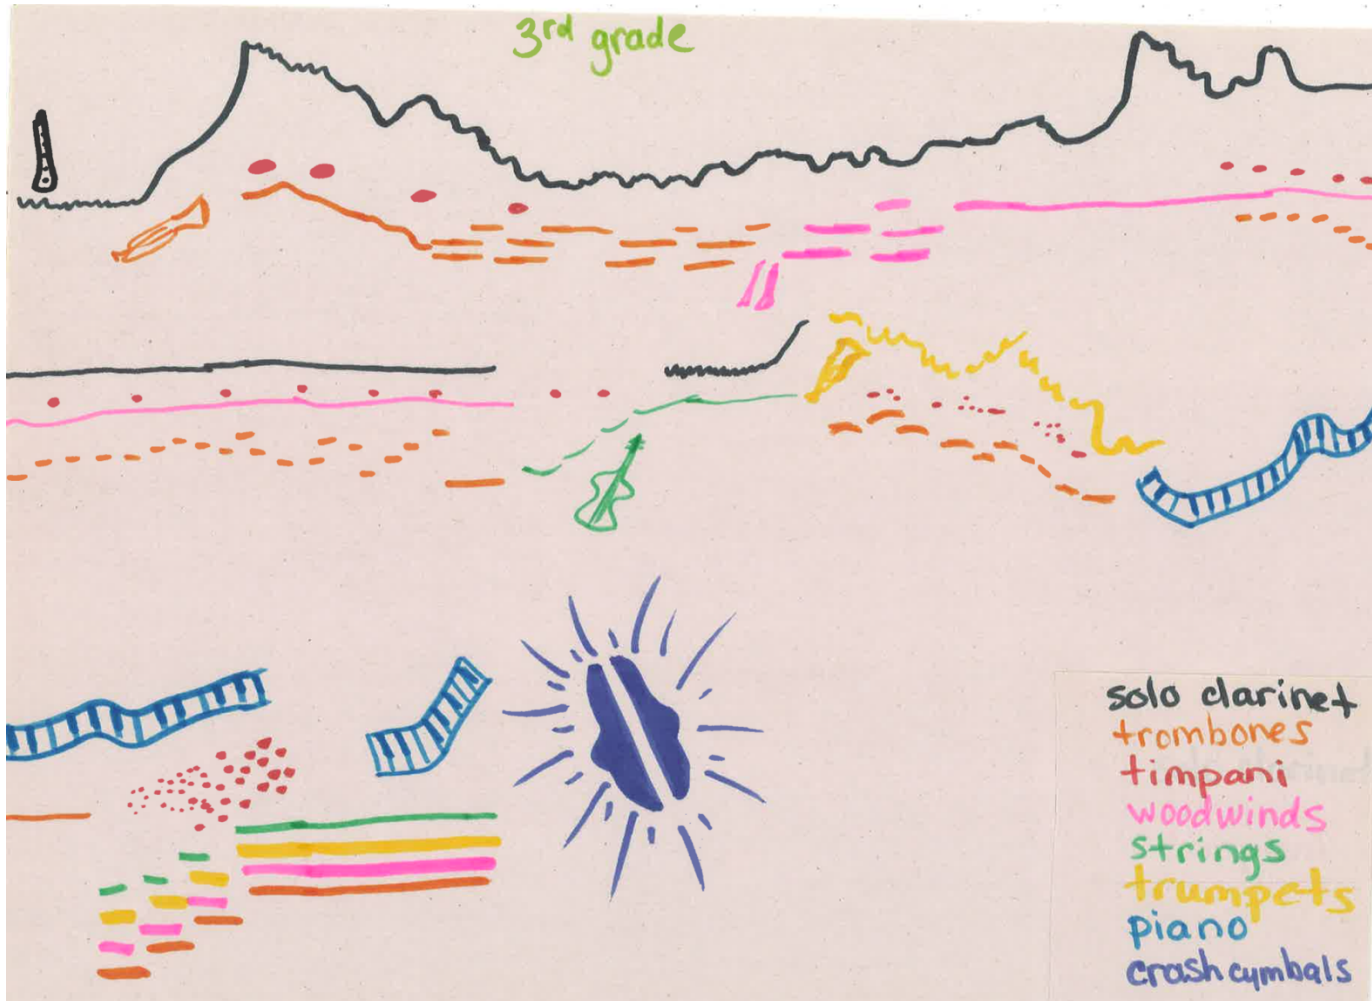 3rd grade
solo clarinet
trombones
timpani
woodwinds
strings
trumpets
piano
crash cymbals